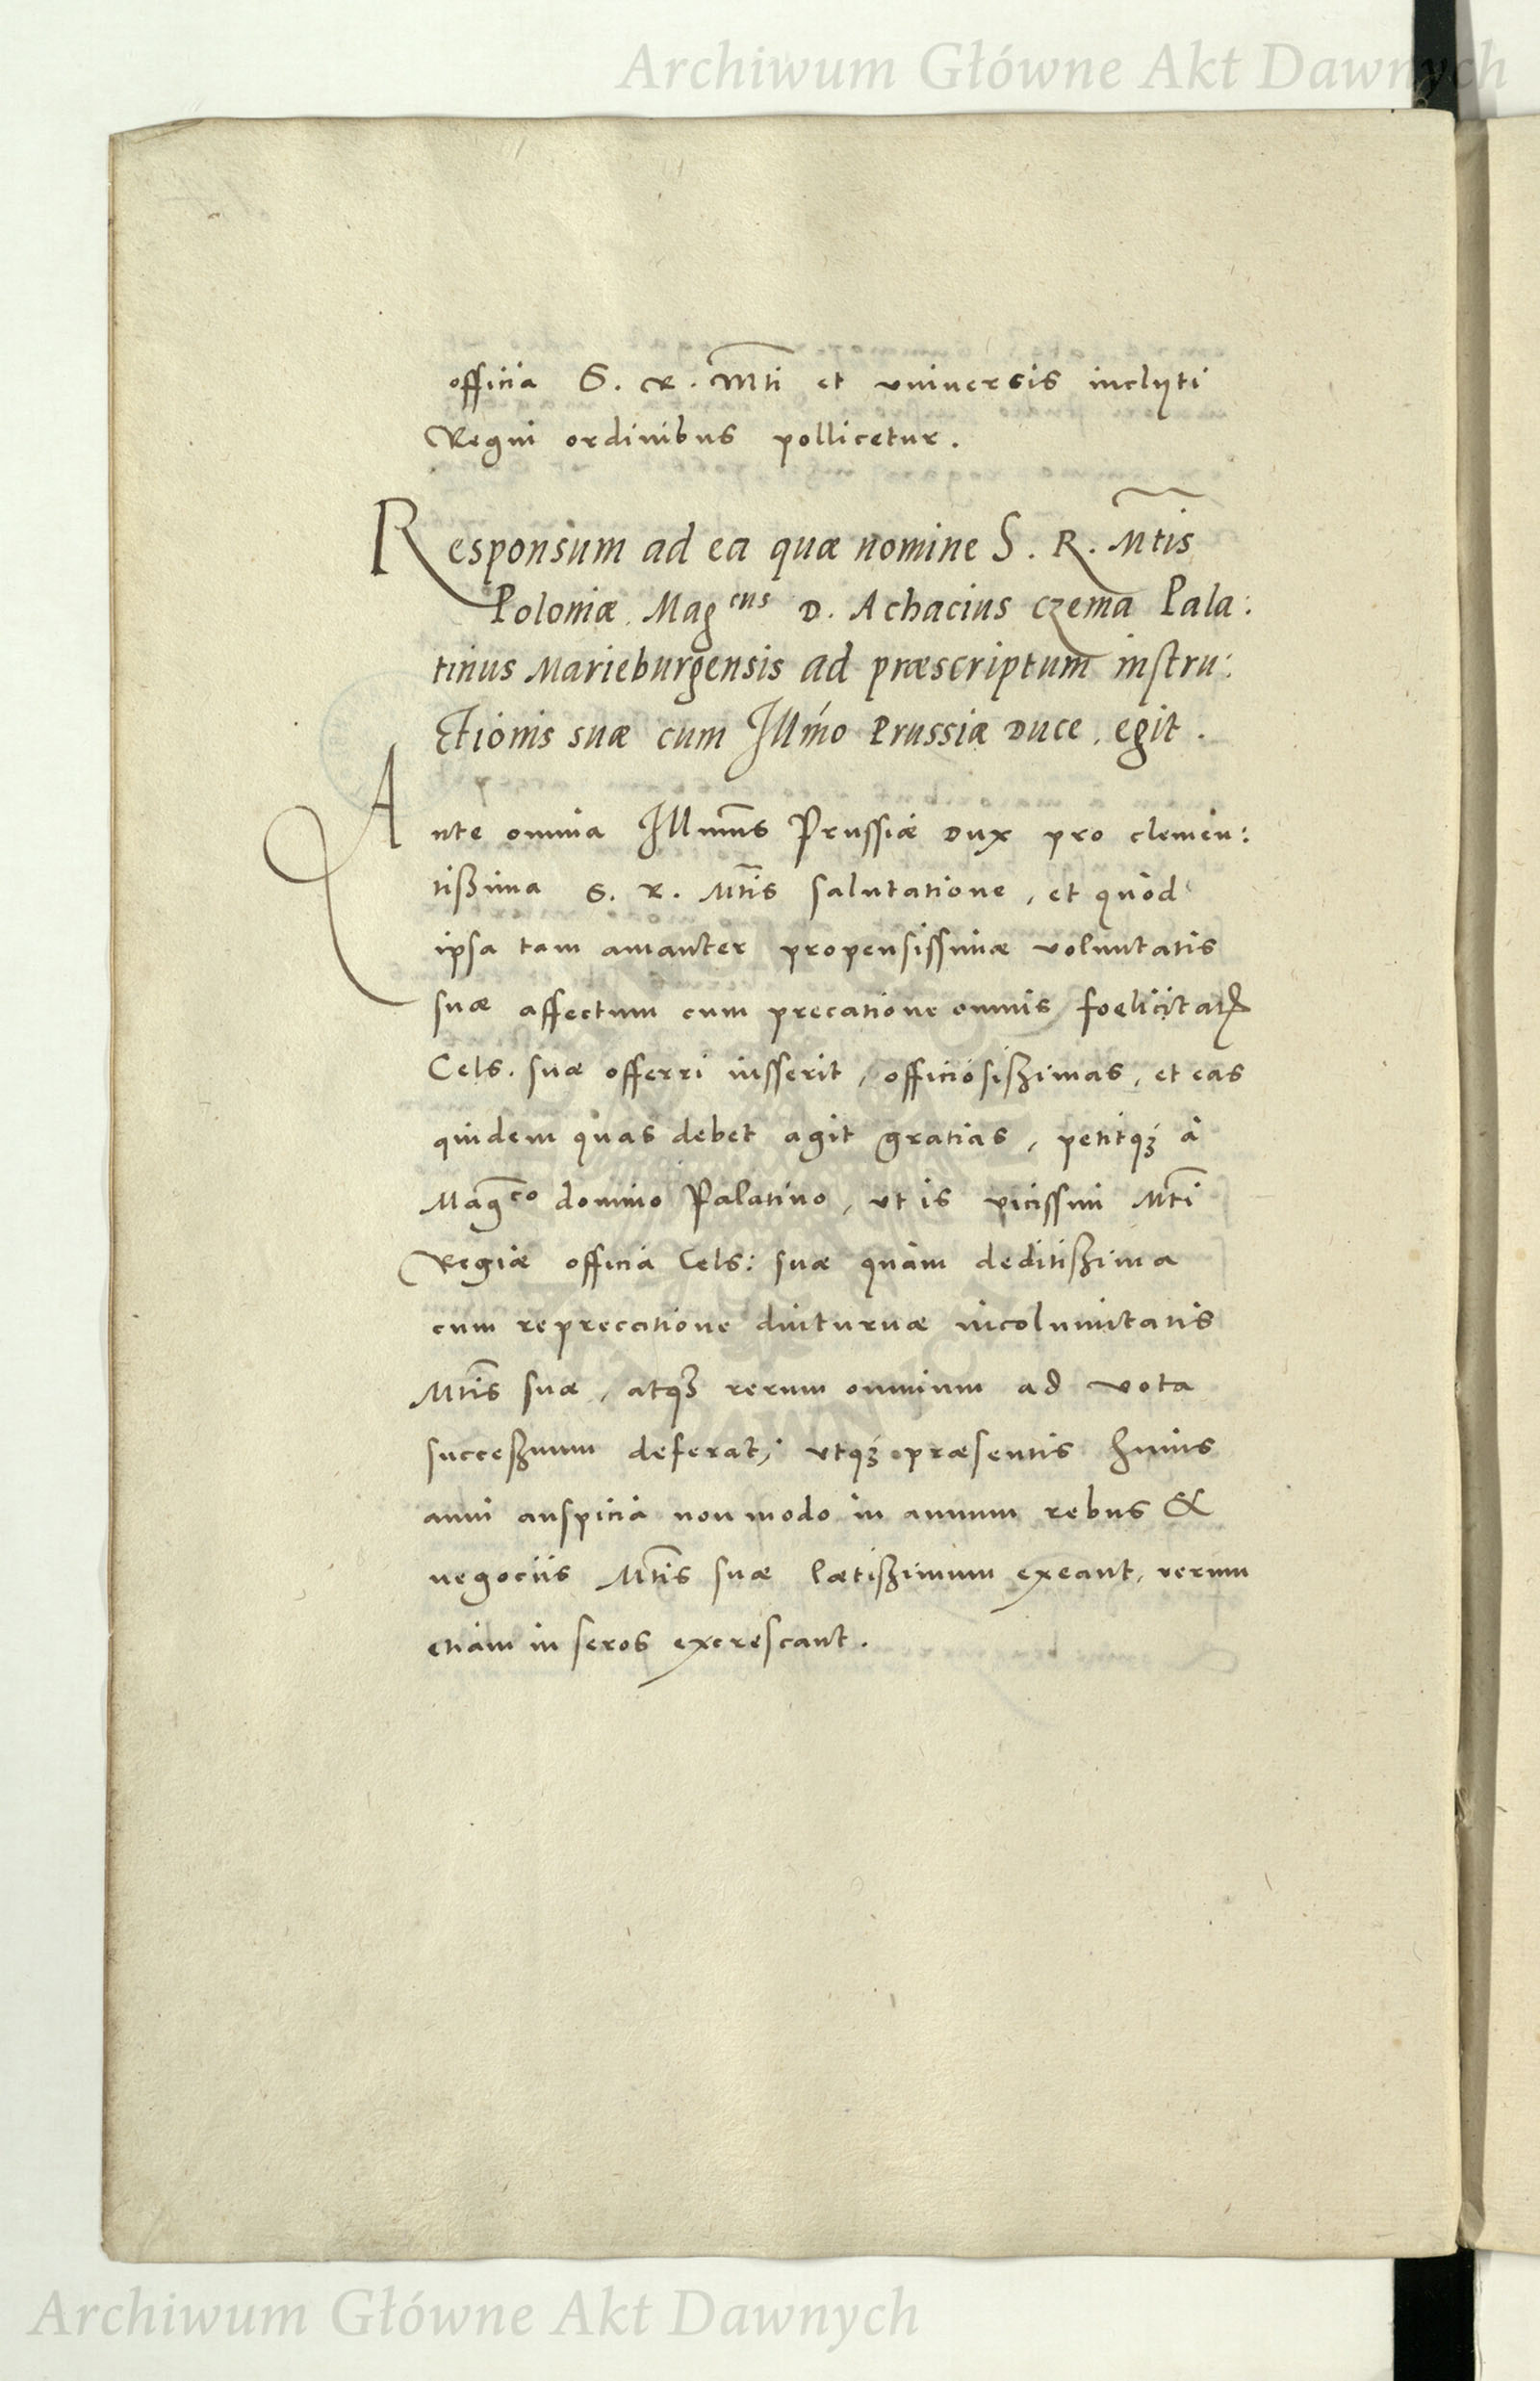 Archiwum Główne Akt Dawnych
officia S. R. Mti et vniuersis inclyti
Regni ordinibus pollicetur.
Responsum ad ea quæ nomine S. R. Mtis
Poloniæ Magcus D. Achacius Czema Pala:
tinus Marieburgensis ad præscriptum instru:
ctionis suæ cum Illmo Prussiæ Duce egit.
Ante omnia Illmus Prussiæ Dux pro clemen:
tißima S. R. Mtis salutatione, et quòd
ipsa tam amanter propensissimæ voluntatis
suæ affectum cum precatione omnis foelicitatis
Cels. suæ offerri iusserit, officiosißimas, et eas
quidem quas debet agit gratias, petitqꝫ à
Magco domino Palatino, vt is vicissim Mti
Regiæ officia Cels: suæ quàm deditißima
cum reprecatione diuturnæ incolumitatis
Mtis suæ, atqꝫ rerum omnium ad vota
succeßuum deferat, vtqꝫ præsentis huius
anni auspicia non modo in annum rebus &
negociis Mtis suæ lætißimum exeant, verum
etiam in seros excrescant.
Archiwum Główne Akt Dawnych